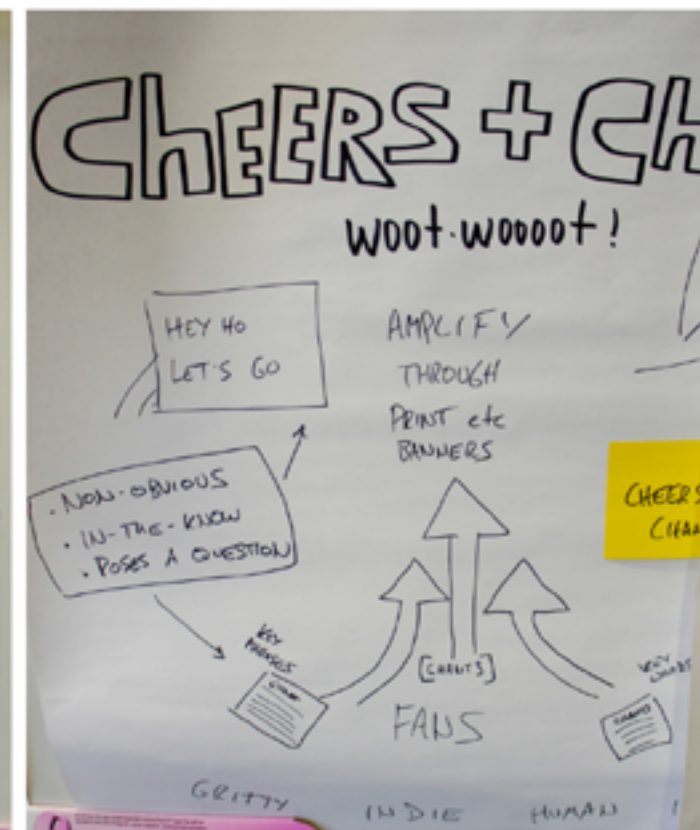 CHEERS + CH
WOOT-WOOOOT!
HEY HO
LET'S GO
AMPLIFY
THROUGH
PRINT etc
BANNERS
· NON-OBVIOUS
· IN-THE-KNOW
· POSES A QUESTION
CHEERS
CHAN
KEY
PHRASES
[CHANTS]
FANS
KEY
WORDS
GRITTY INDIE HUMAN